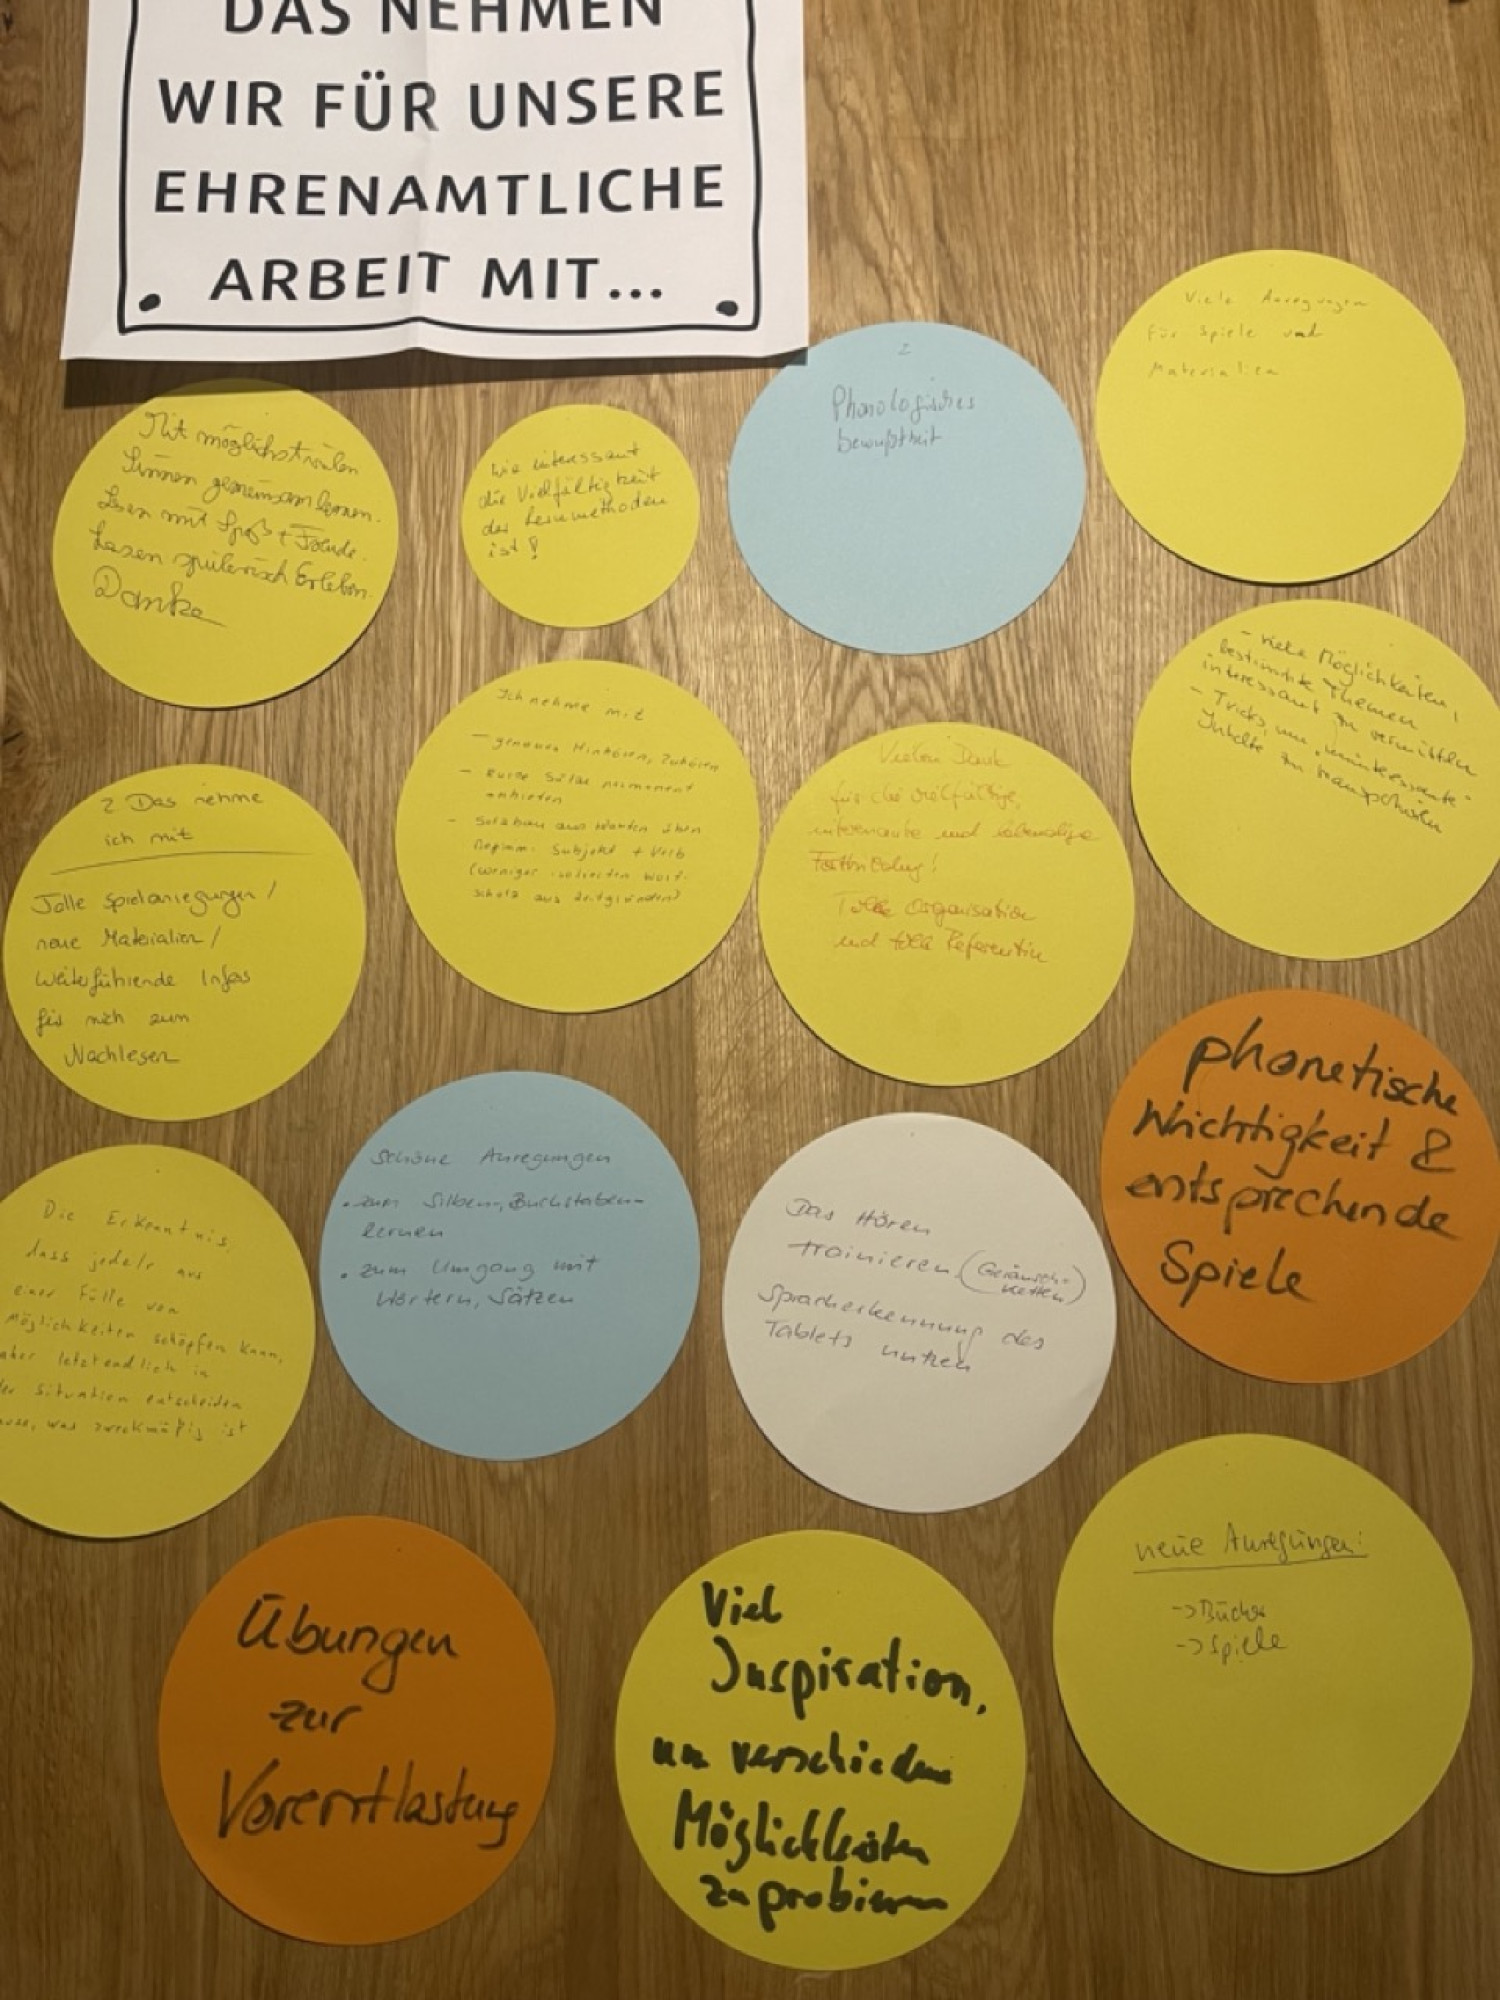 DAS NEHMEN
WIR FÜR UNSERE
EHRENAMTLICHE
ARBEIT MIT...
Viele Anregungen
für Spiele und
Materialien
2
Phonologisches
bewußtheit
Mit möglichst vielen
Sinnen gemeinsam lernen.
Lesen mit Spaß + Freude.
Lesen spielerisch Erleben.
Danke
wie interessant
die Vielfältigkeit
der Lernmethoden
ist!
- viele Möglichkeiten,
bestimmte Themen
interessant zu vermitteln
- Tricks, um "uninteressante"
Inhalte zu transportieren
Ich nehme mit
- genaues Hinhören, Zuhören
- kurze Sätze permanent
anbieten
- Satzbau aus Wörtern üben
Beginn: Subjekt + Verb
(weniger isolierten Wort-
schatz aus Zeitgründen)
Vielen Dank
für die vielfältige,
interessante und lebendige
Fortbildung!
Tolle Organisation
und tolle Referentin
2 Das nehme
ich mit
Tolle Spielanregungen /
neue Materialien /
Weiterführende Infos
für mich zum
Nachlesen
phonetische
Wichtigkeit &
entsprechende
Spiele
schöne Anregungen
• zum Silben, Buchstaben-
lernen
• zum Umgang mit
Wörtern, Sätzen
Das Hören
trainieren (Geräusch-
ketten)
Spracherkennung des
Tablets nutzen
Die Erkenntnis,
dass jede/r aus
einer Fülle von
Möglichkeiten schöpfen kann,
aber letztendlich in
der Situation entscheiden
muss, was zweckmäßig ist
neue Anregungen:
-> Bücher
-> Spiele
Übungen
zur
Vorentlastung
Viel
Inspiration,
um verschiedene
Möglichkeiten
zu probieren